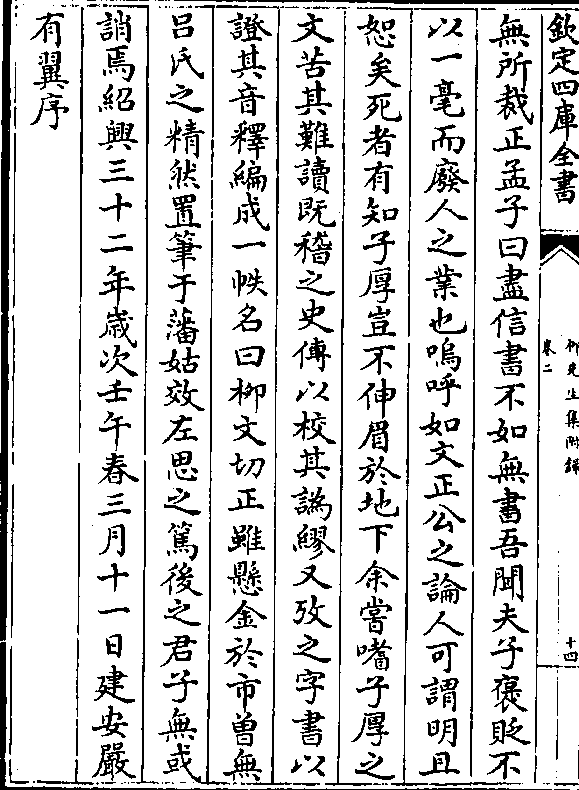 欽定四庫全書
柳先生集附錄
卷二
十四
無所裁正孟子曰盡信書不如無書吾聞夫子褒貶不
以一毫而廢人之業也嗚呼如文正公之論人可謂明且
恕矣死者有知子厚豈不伸眉於地下余嘗嗜子厚之
文苦其難讀既稽之史傳以校其譌繆又攷之字書以
證其音釋編成一帙名曰柳文切正雖懸金於市曽無
呂氏之精然置筆于藩姑效左思之篤後之君子無或
誚焉紹興三十二年歳次壬午春三月十一日建安嚴
有翼序